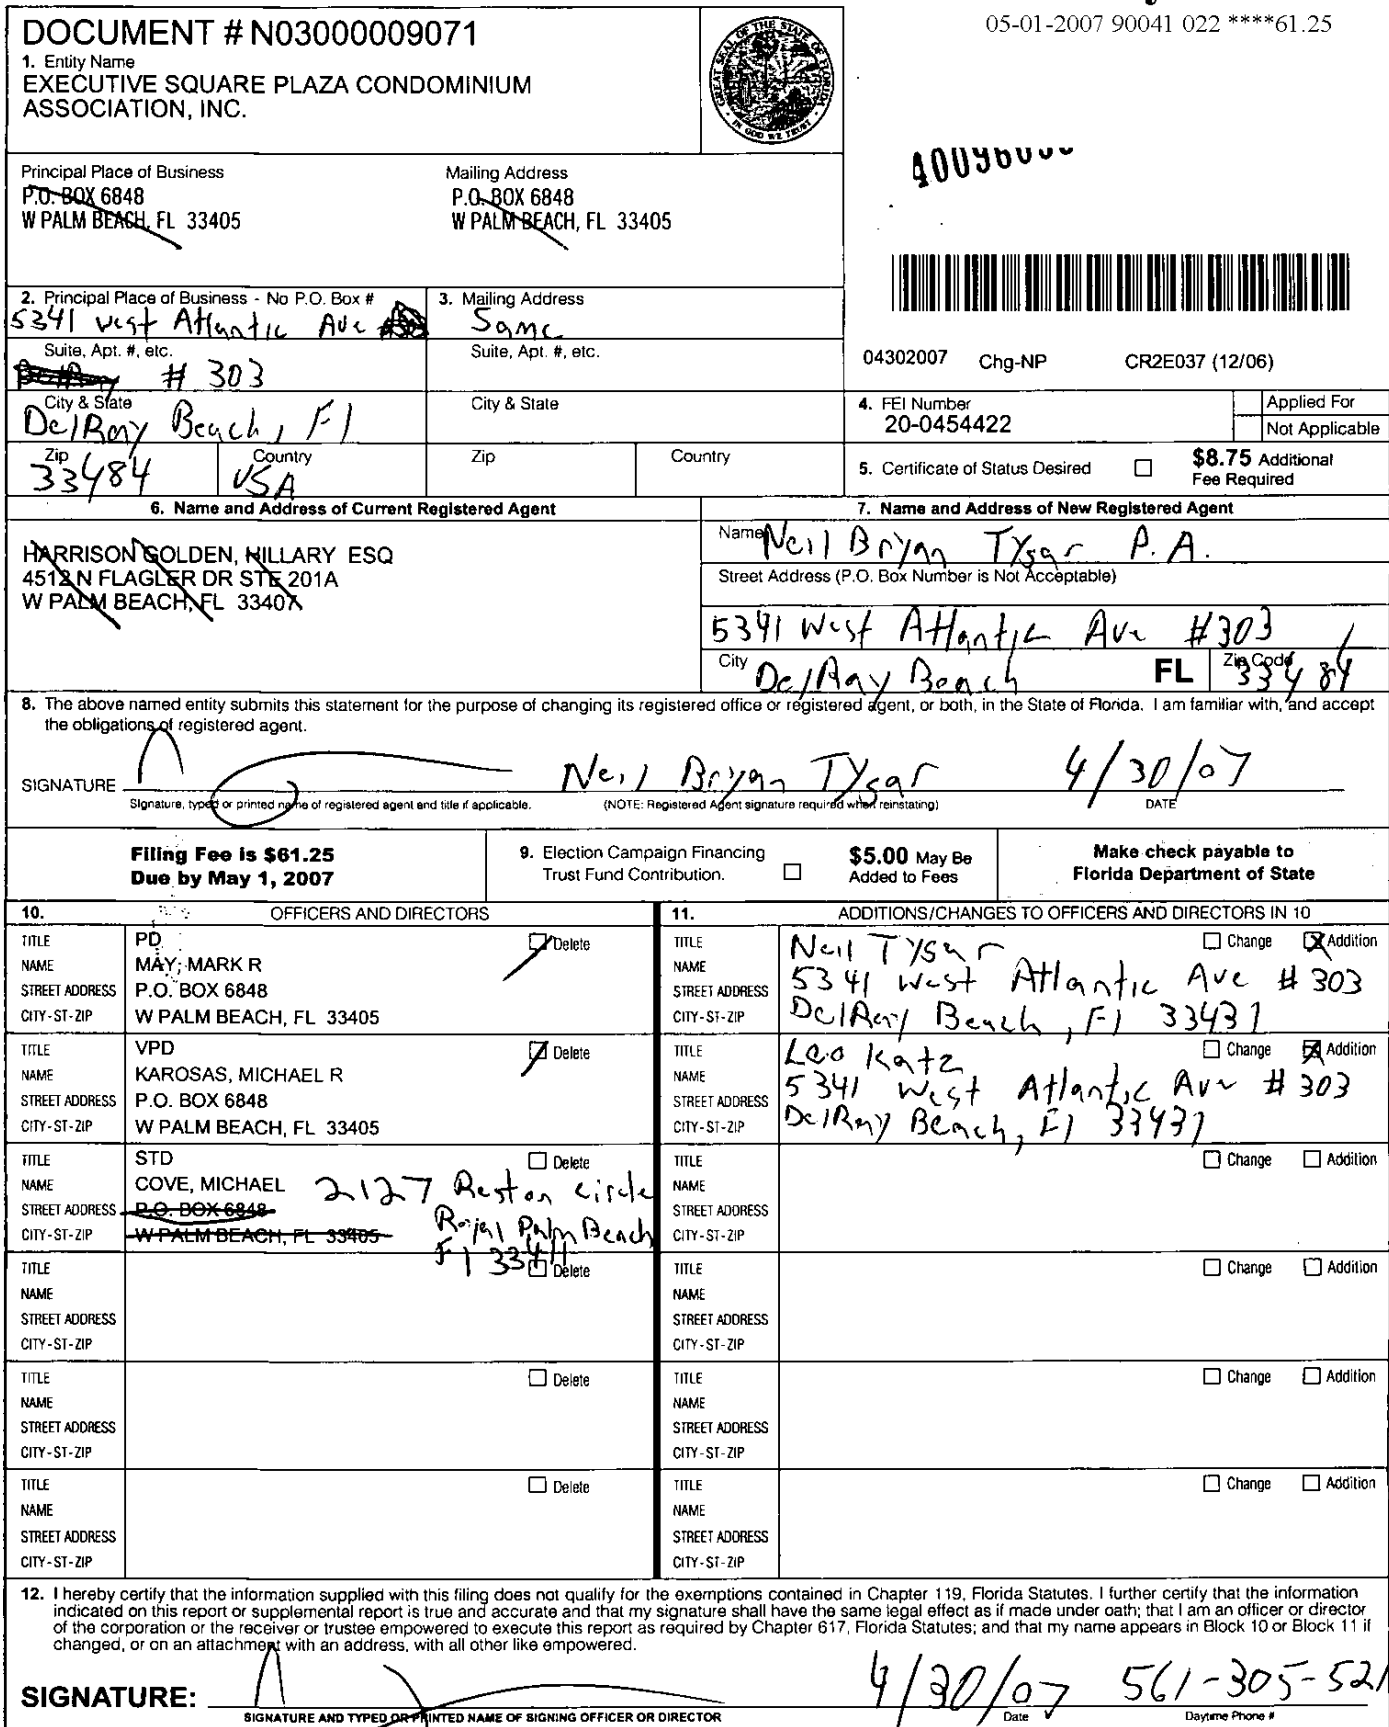 05-01-2007 90041 022 ****61.25
DOCUMENT # N03000009071
1. Entity Name
EXECUTIVE SQUARE PLAZA CONDOMINIUM
ASSOCIATION, INC.
GREAT SEAL OF THE STATE OF FLORIDA
IN GOD WE TRUST
Principal Place of Business
P.O. BOX 6848
W PALM BEACH, FL 33405
Mailing Address
P.O. BOX 6848
W PALM BEACH, FL 33405
2. Principal Place of Business - No P.O. Box #
5341 West Atlantic Ave
Suite, Apt. #, etc.
# 303
City & State
DelRay Beach, Fl
Zip
33484
Country
USA
3. Mailing Address
Same
Suite, Apt. #, etc.
City & State
Zip
Country
04302007 Chg-NP CR2E037 (12/06)
4. FEI Number
20-0454422
Applied For
Not Applicable
5. Certificate of Status Desired
$8.75 Additional
Fee Required
6. Name and Address of Current Registered Agent
HARRISON GOLDEN, HILLARY ESQ
4512 N FLAGLER DR STE 201A
W PALM BEACH, FL 33407
7. Name and Address of New Registered Agent
Name Neil Bryan Tygar P.A.
Street Address (P.O. Box Number is Not Acceptable)
5341 West Atlantic Ave #303
City DelRay Beach FL Zip Code 33484
8. The above named entity submits this statement for the purpose of changing its registered office or registered agent, or both, in the State of Florida. I am familiar with, and accept
the obligations of registered agent.
SIGNATURE Neil Bryan Tygar 4/30/07
Signature, typed or printed name of registered agent and title if applicable. (NOTE: Registered Agent signature required when reinstating) DATE
Filing Fee is $61.25
Due by May 1, 2007
9. Election Campaign Financing
Trust Fund Contribution.
$5.00 May Be
Added to Fees
Make check payable to
Florida Department of State
10. OFFICERS AND DIRECTORS
TITLE PD Delete
NAME MAY, MARK R
STREET ADDRESS P.O. BOX 6848
CITY-ST-ZIP W PALM BEACH, FL 33405
TITLE VPD Delete
NAME KAROSAS, MICHAEL R
STREET ADDRESS P.O. BOX 6848
CITY-ST-ZIP W PALM BEACH, FL 33405
TITLE STD Delete
NAME COVE, MICHAEL 2127 Reston Circle
STREET ADDRESS P.O. BOX 6848 Royal Palm Beach
CITY-ST-ZIP W PALM BEACH, FL 33405 Fl 33411
TITLE Delete
NAME
STREET ADDRESS
CITY-ST-ZIP
TITLE Delete
NAME
STREET ADDRESS
CITY-ST-ZIP
TITLE Delete
NAME
STREET ADDRESS
CITY-ST-ZIP
11. ADDITIONS/CHANGES TO OFFICERS AND DIRECTORS IN 10
TITLE Neil Tygar Change Addition
NAME 5341 West Atlantic Ave # 303
STREET ADDRESS
CITY-ST-ZIP DelRay Beach, Fl 33431
TITLE Leo Katz Change Addition
NAME
STREET ADDRESS 5341 West Atlantic Ave # 303
CITY-ST-ZIP DelRay Beach, Fl 33431
TITLE Change Addition
NAME
STREET ADDRESS
CITY-ST-ZIP
TITLE Change Addition
NAME
STREET ADDRESS
CITY-ST-ZIP
TITLE Change Addition
NAME
STREET ADDRESS
CITY-ST-ZIP
TITLE Change Addition
NAME
STREET ADDRESS
CITY-ST-ZIP
12. I hereby certify that the information supplied with this filing does not qualify for the exemptions contained in Chapter 119, Florida Statutes. I further certify that the information
indicated on this report or supplemental report is true and accurate and that my signature shall have the same legal effect as if made under oath; that I am an officer or director
of the corporation or the receiver or trustee empowered to execute this report as required by Chapter 617, Florida Statutes; and that my name appears in Block 10 or Block 11 if
changed, or on an attachment with an address, with all other like empowered.
SIGNATURE: 4/30/07 561-305-521
SIGNATURE AND TYPED OR PRINTED NAME OF SIGNING OFFICER OR DIRECTOR Date Daytime Phone #